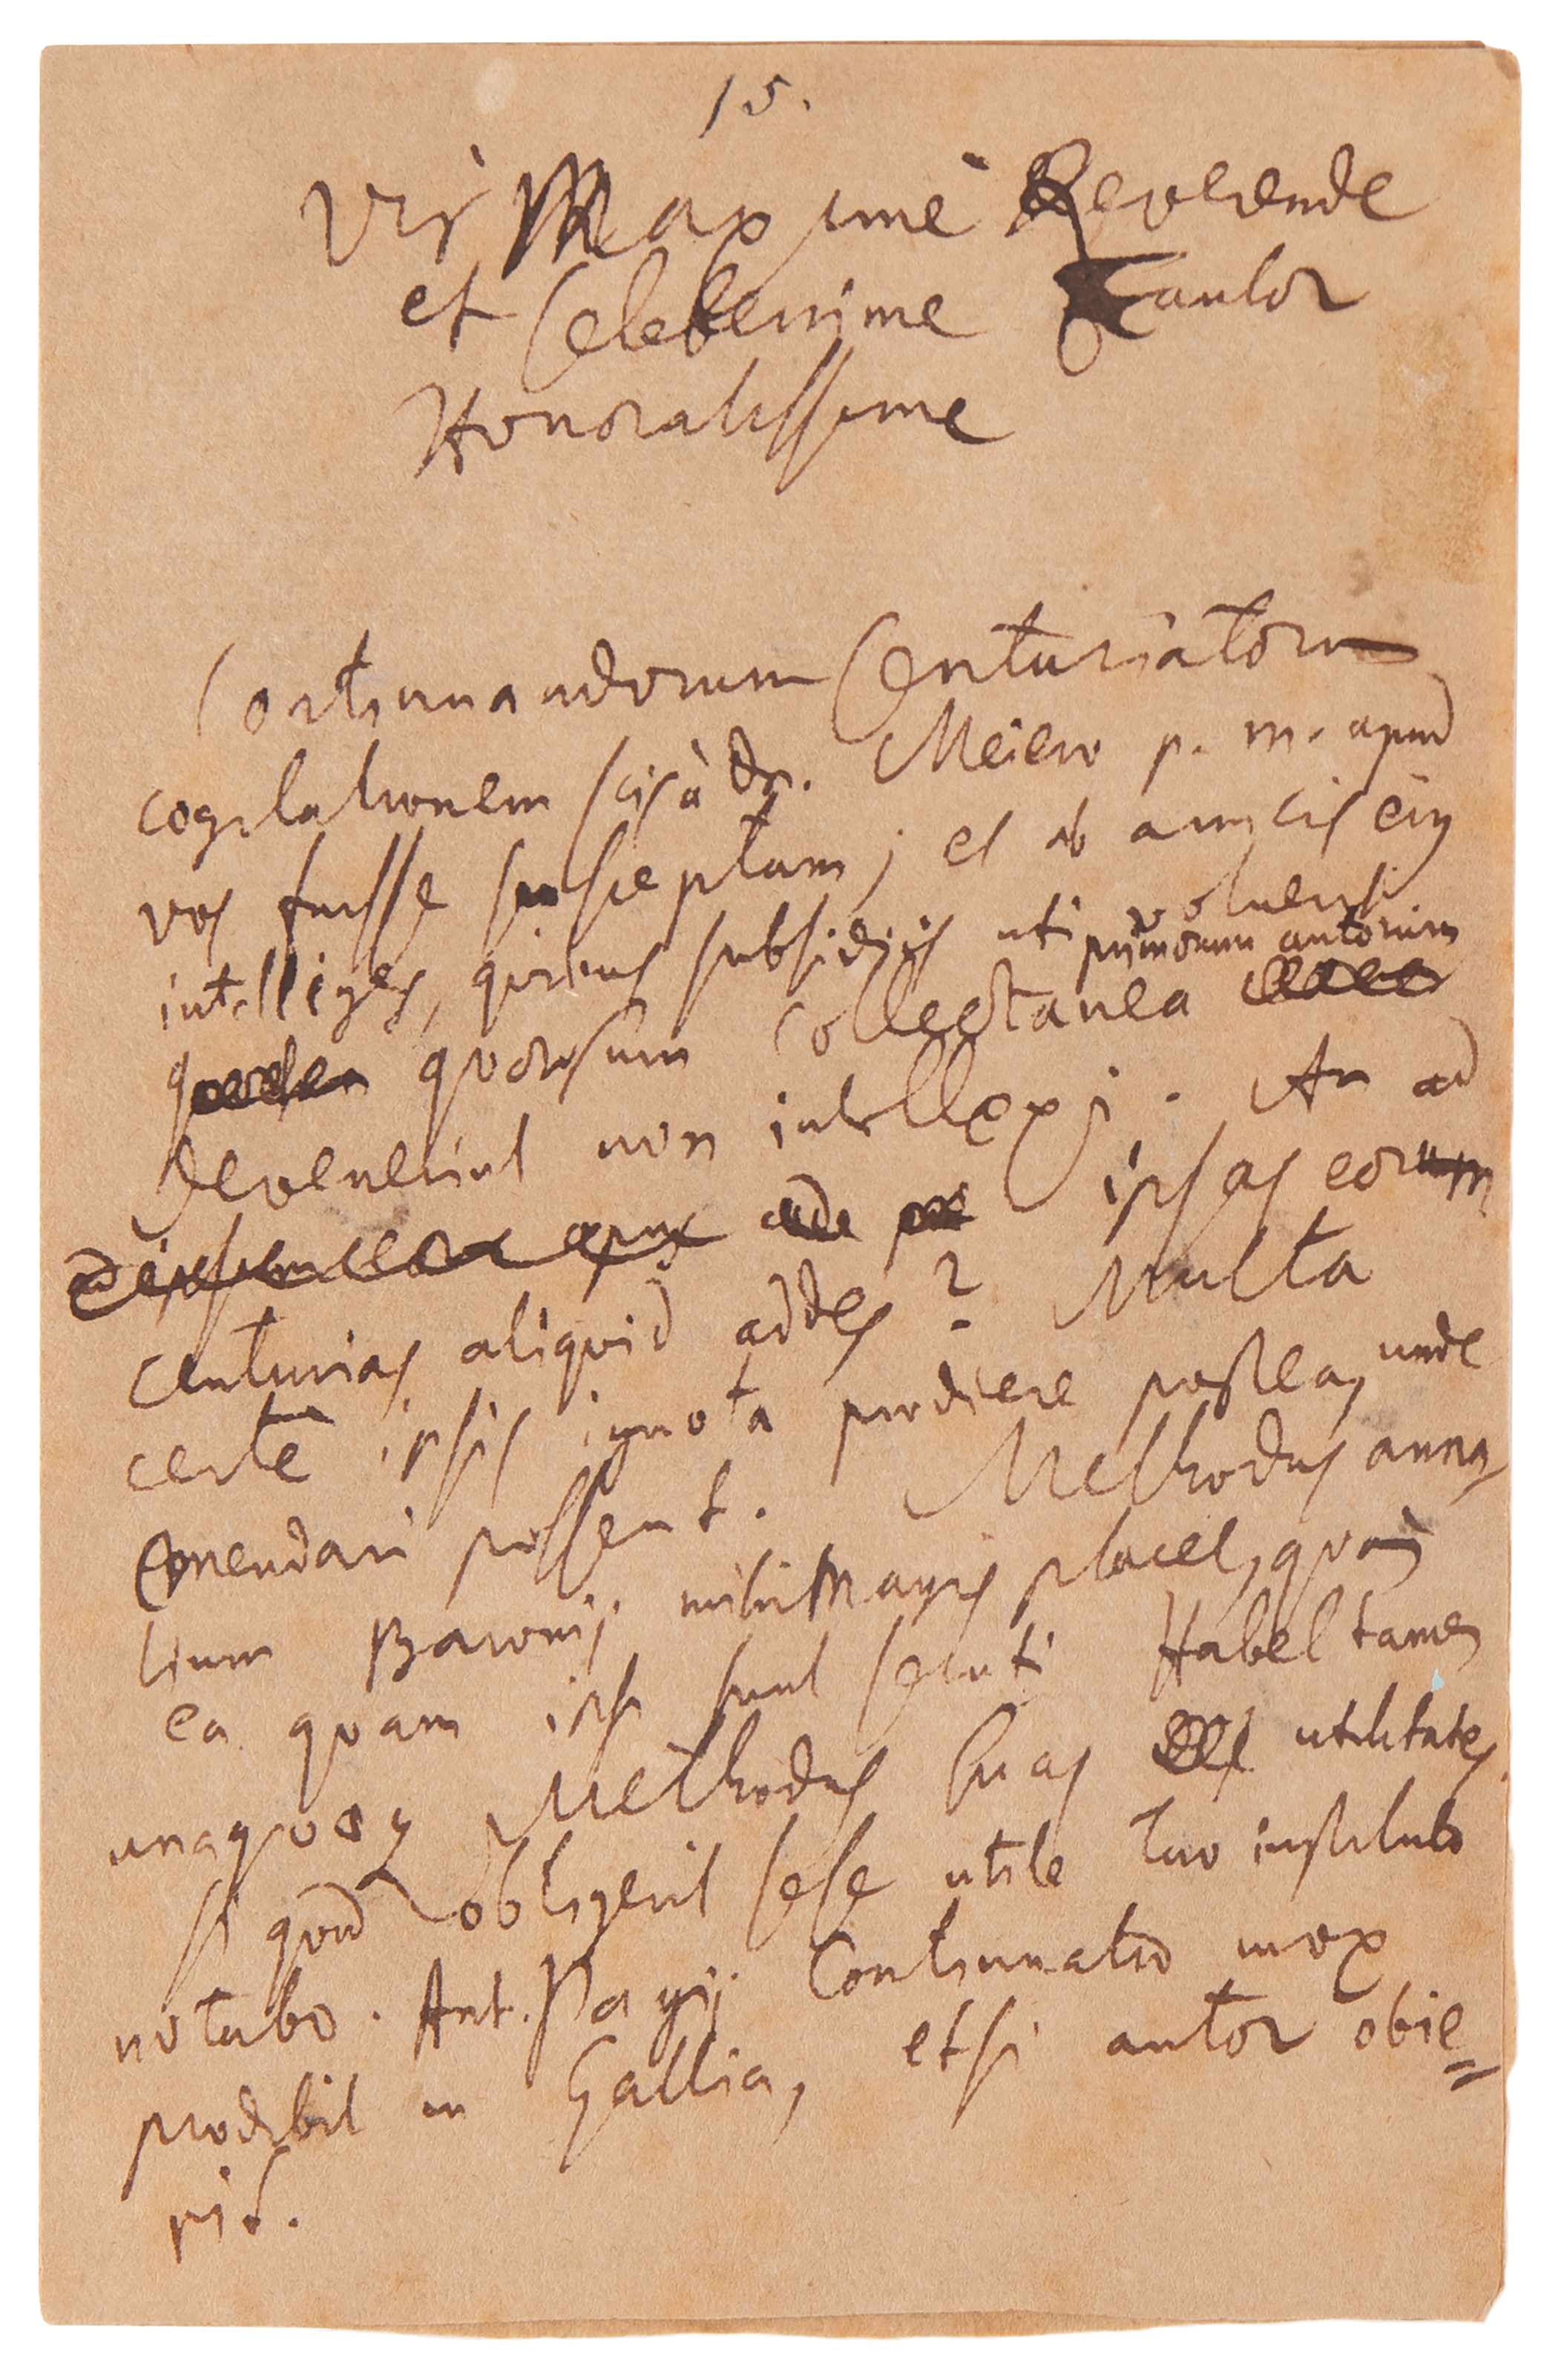 15.
Vir Maxime Reverende
et Celeberrime Fautor
Honoratissime
Continuandorum Centuriatorum
cogitationem scis à Dn. Meiero p. m. apud
vos fuisse susceptam; et ab amicis eiꝯ
intelliges, quibus subsidiis uti voluerit
primorum autorum
quorsum Collectanea
devenerint non intellexi. An ad
ipsas eorum
centurias aliquid addes? Multa
certe ipsis ignota prodiere postea, unde
emendari possent. Methodus anna-
lium Baronij mihi magis placet, quam
ea quam ipsi sunt secuti Habet tamen
unaquoqꝫ Methodus suas utilitates.
si quid obtigerit sese utile tuo instituto
notabo. Ant. Pagij Continuatio mox
prodibit in Gallia, etsi autor obie=
rit.